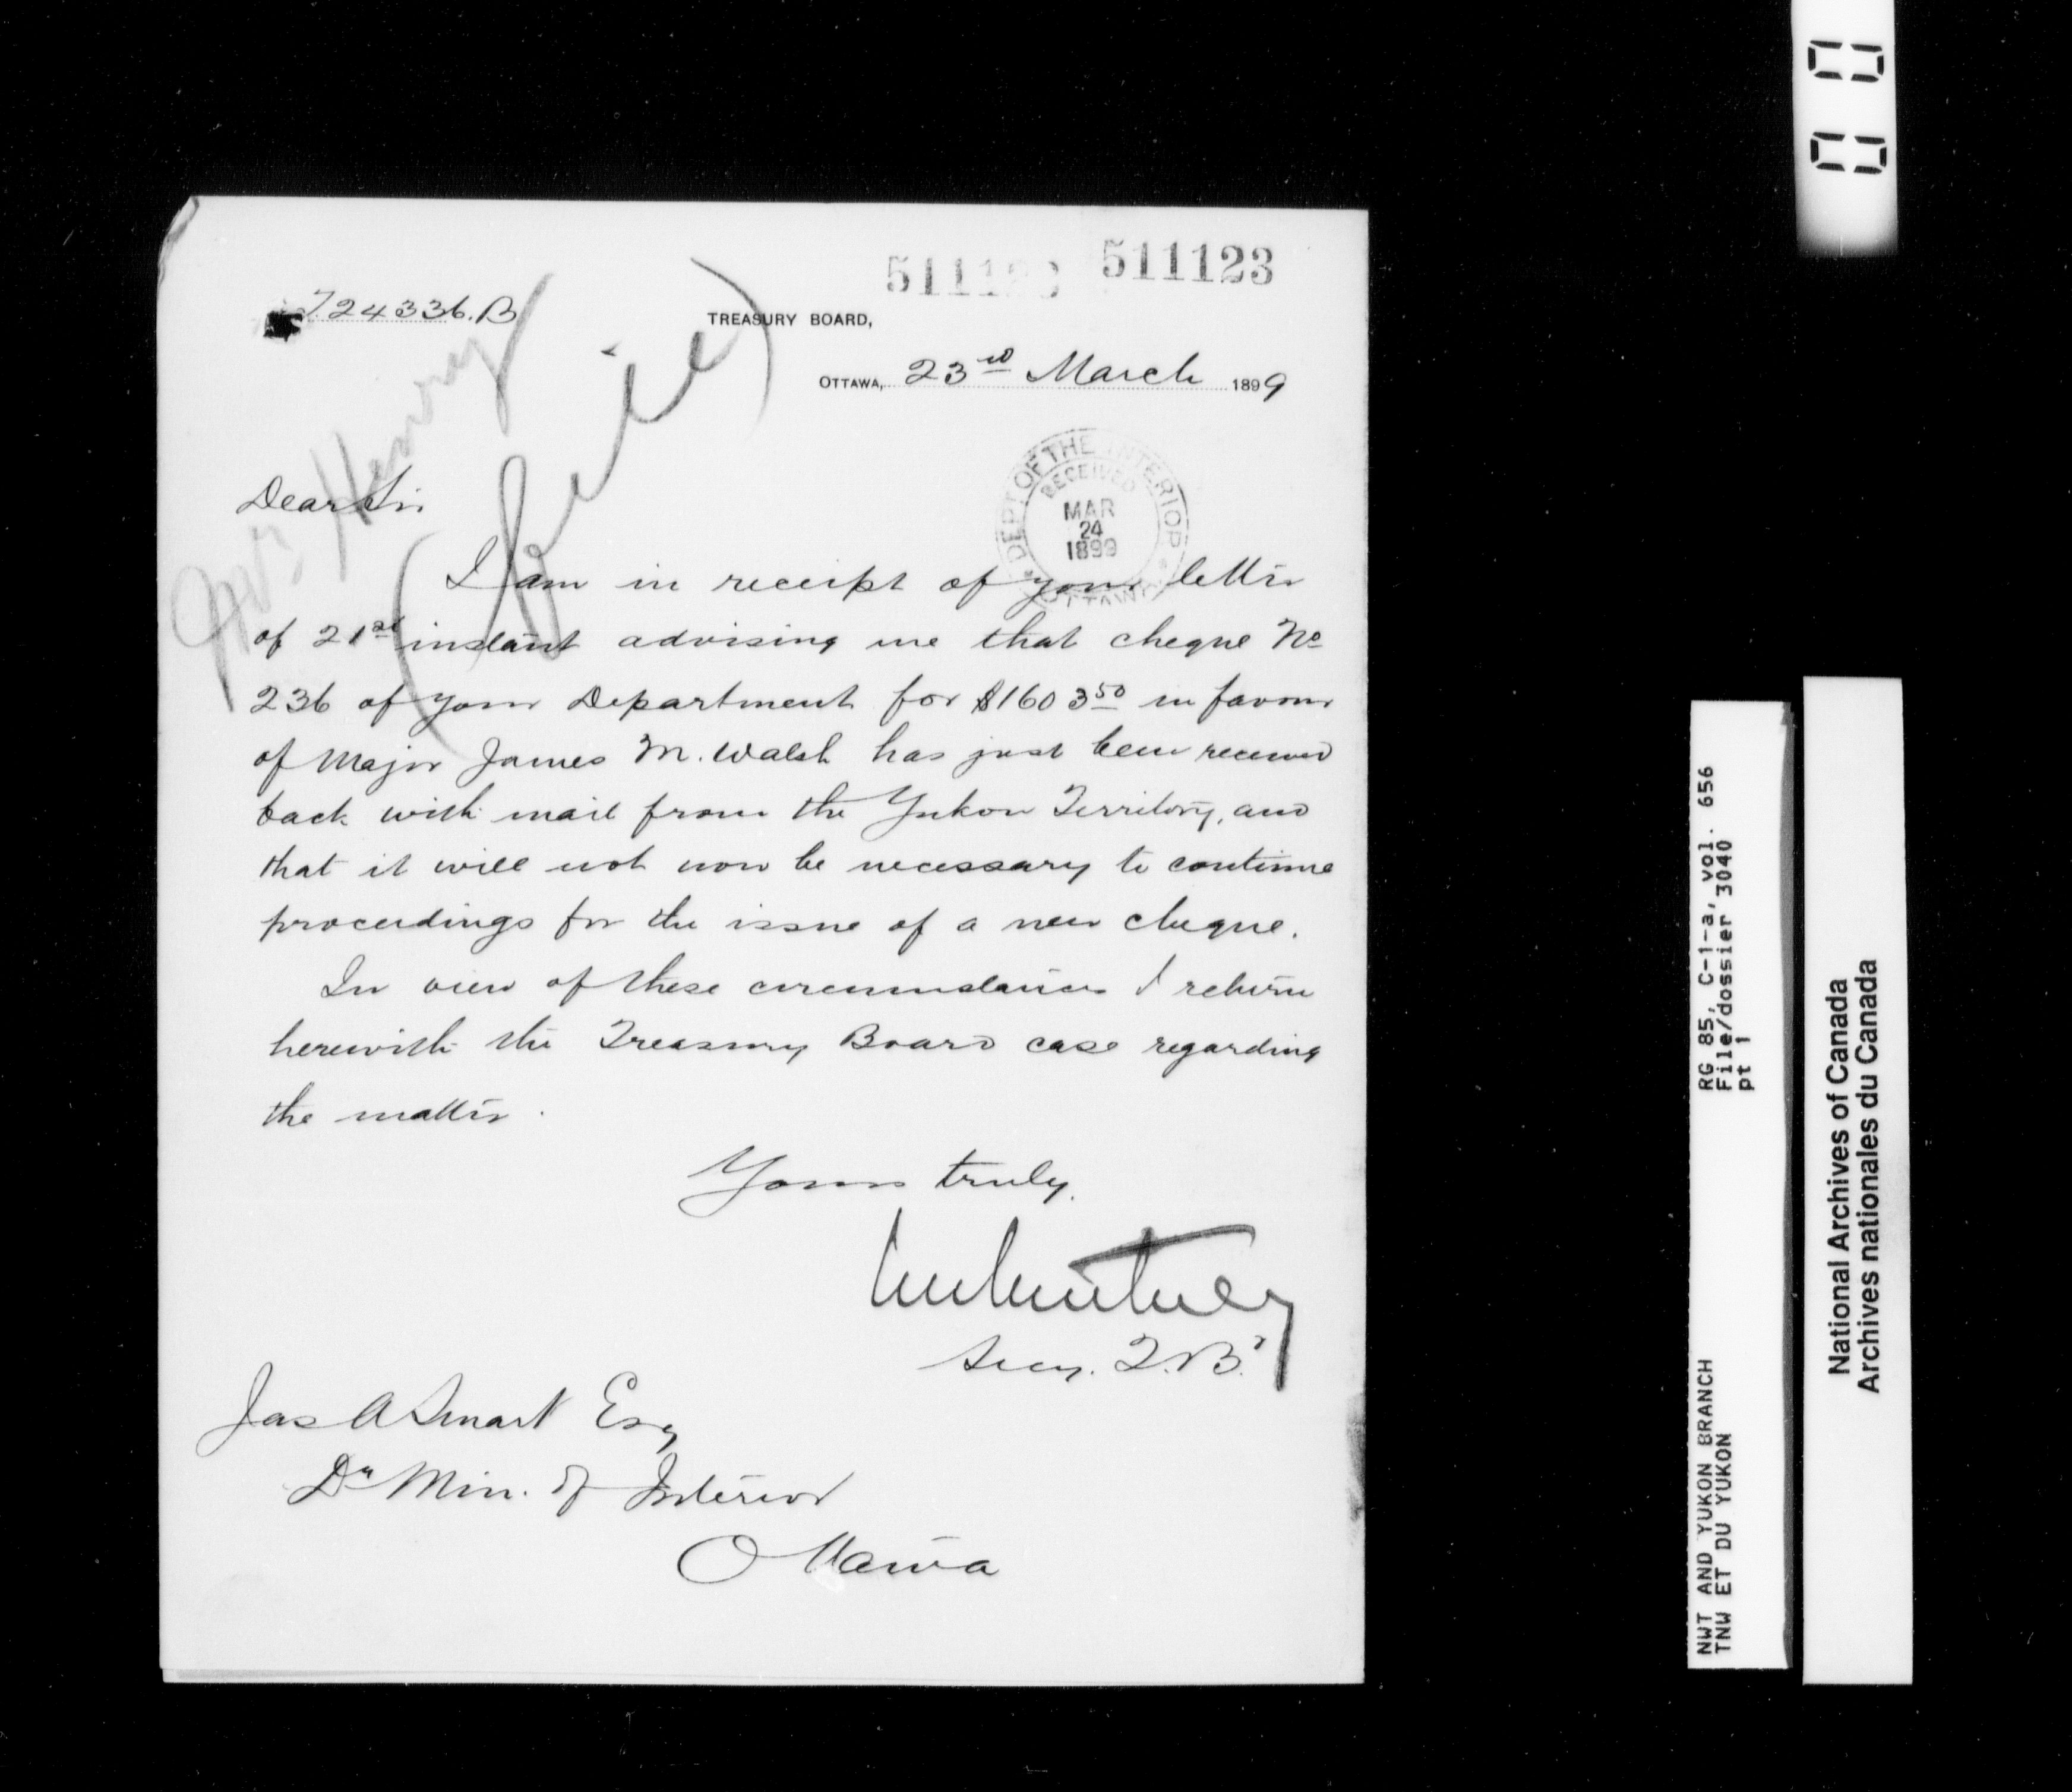 511123 511123
724336.B
TREASURY BOARD,
OTTAWA, 23rd March 1899
Henry
(file)
DEPT OF THE INTERIOR
RECEIVED
MAR
24
1899
OTTAWA
Dear Sir
I am in receipt of your letter
of 21st instant advising me that cheque No
236 of your Department for $1603 50 in favour
of Major James M. Walsh has just been received
back with mail from the Yukon Territory, and
that it will not now be necessary to continue
proceedings for the issue of a new cheque.
In view of these circumstances I return
herewith the Treasury Board case regarding
the matter.
Yours truly,
Secy. T.B.
Jas A Smart Esq
Dy Min. of Interior
Ottawa
RG 85, C-1-a, vol. 656
File/dossier 3040
pt 1
NWT AND YUKON BRANCH
TNW ET DU YUKON
National Archives of Canada
Archives nationales du Canada